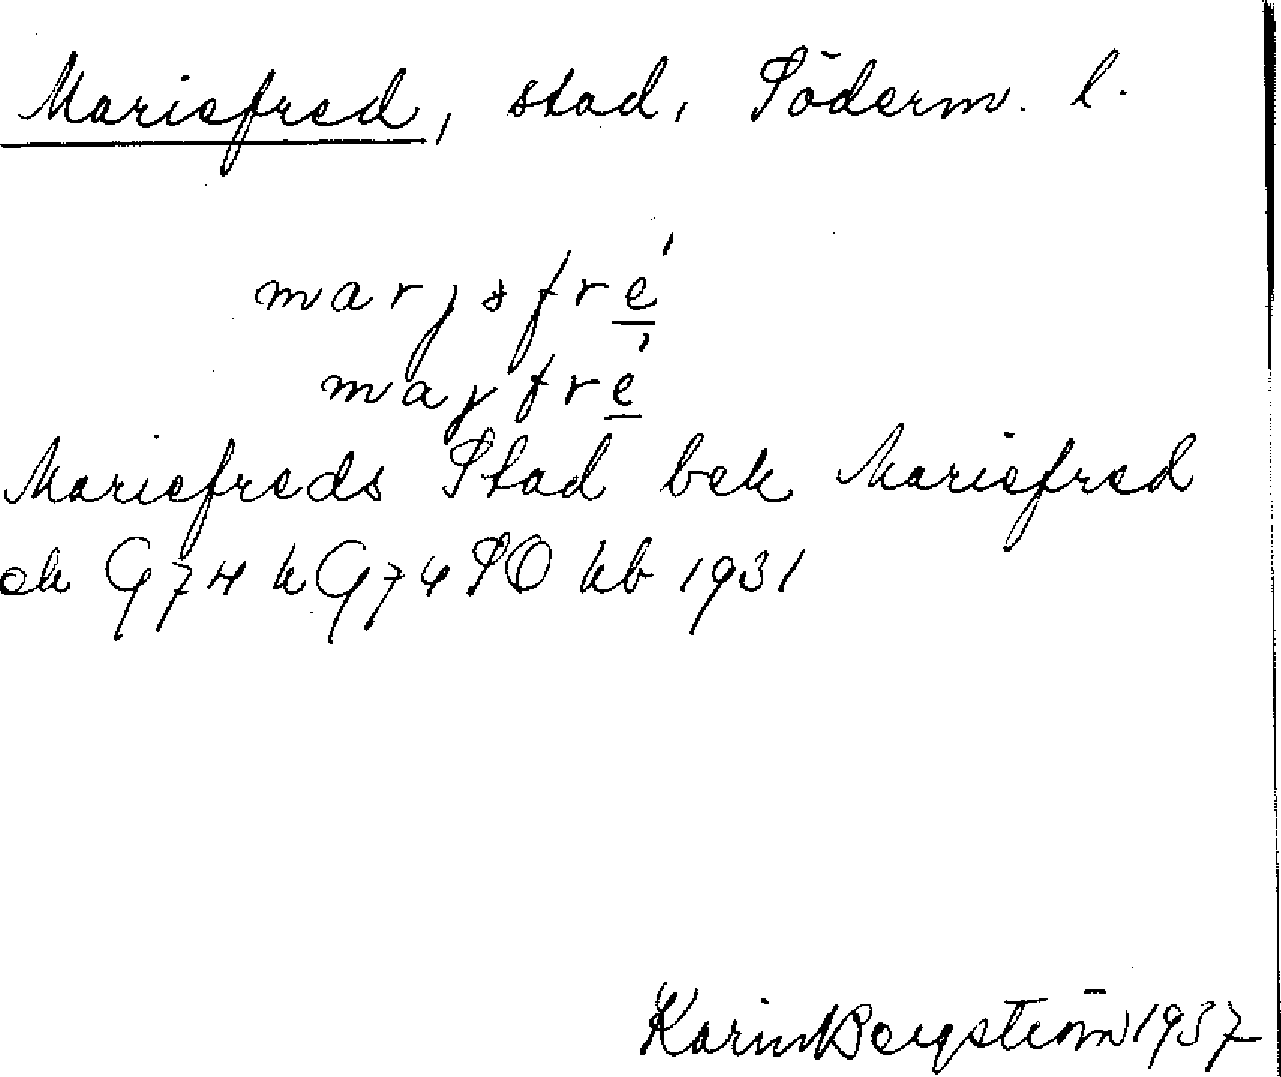 Mariefred, stad, Söderm. l.
marjsfre̲´
majfre̲´
Mariefreds Stad bek Mariefred
ek G74 k G74 SO kb 1931
Karin Bergström 1937